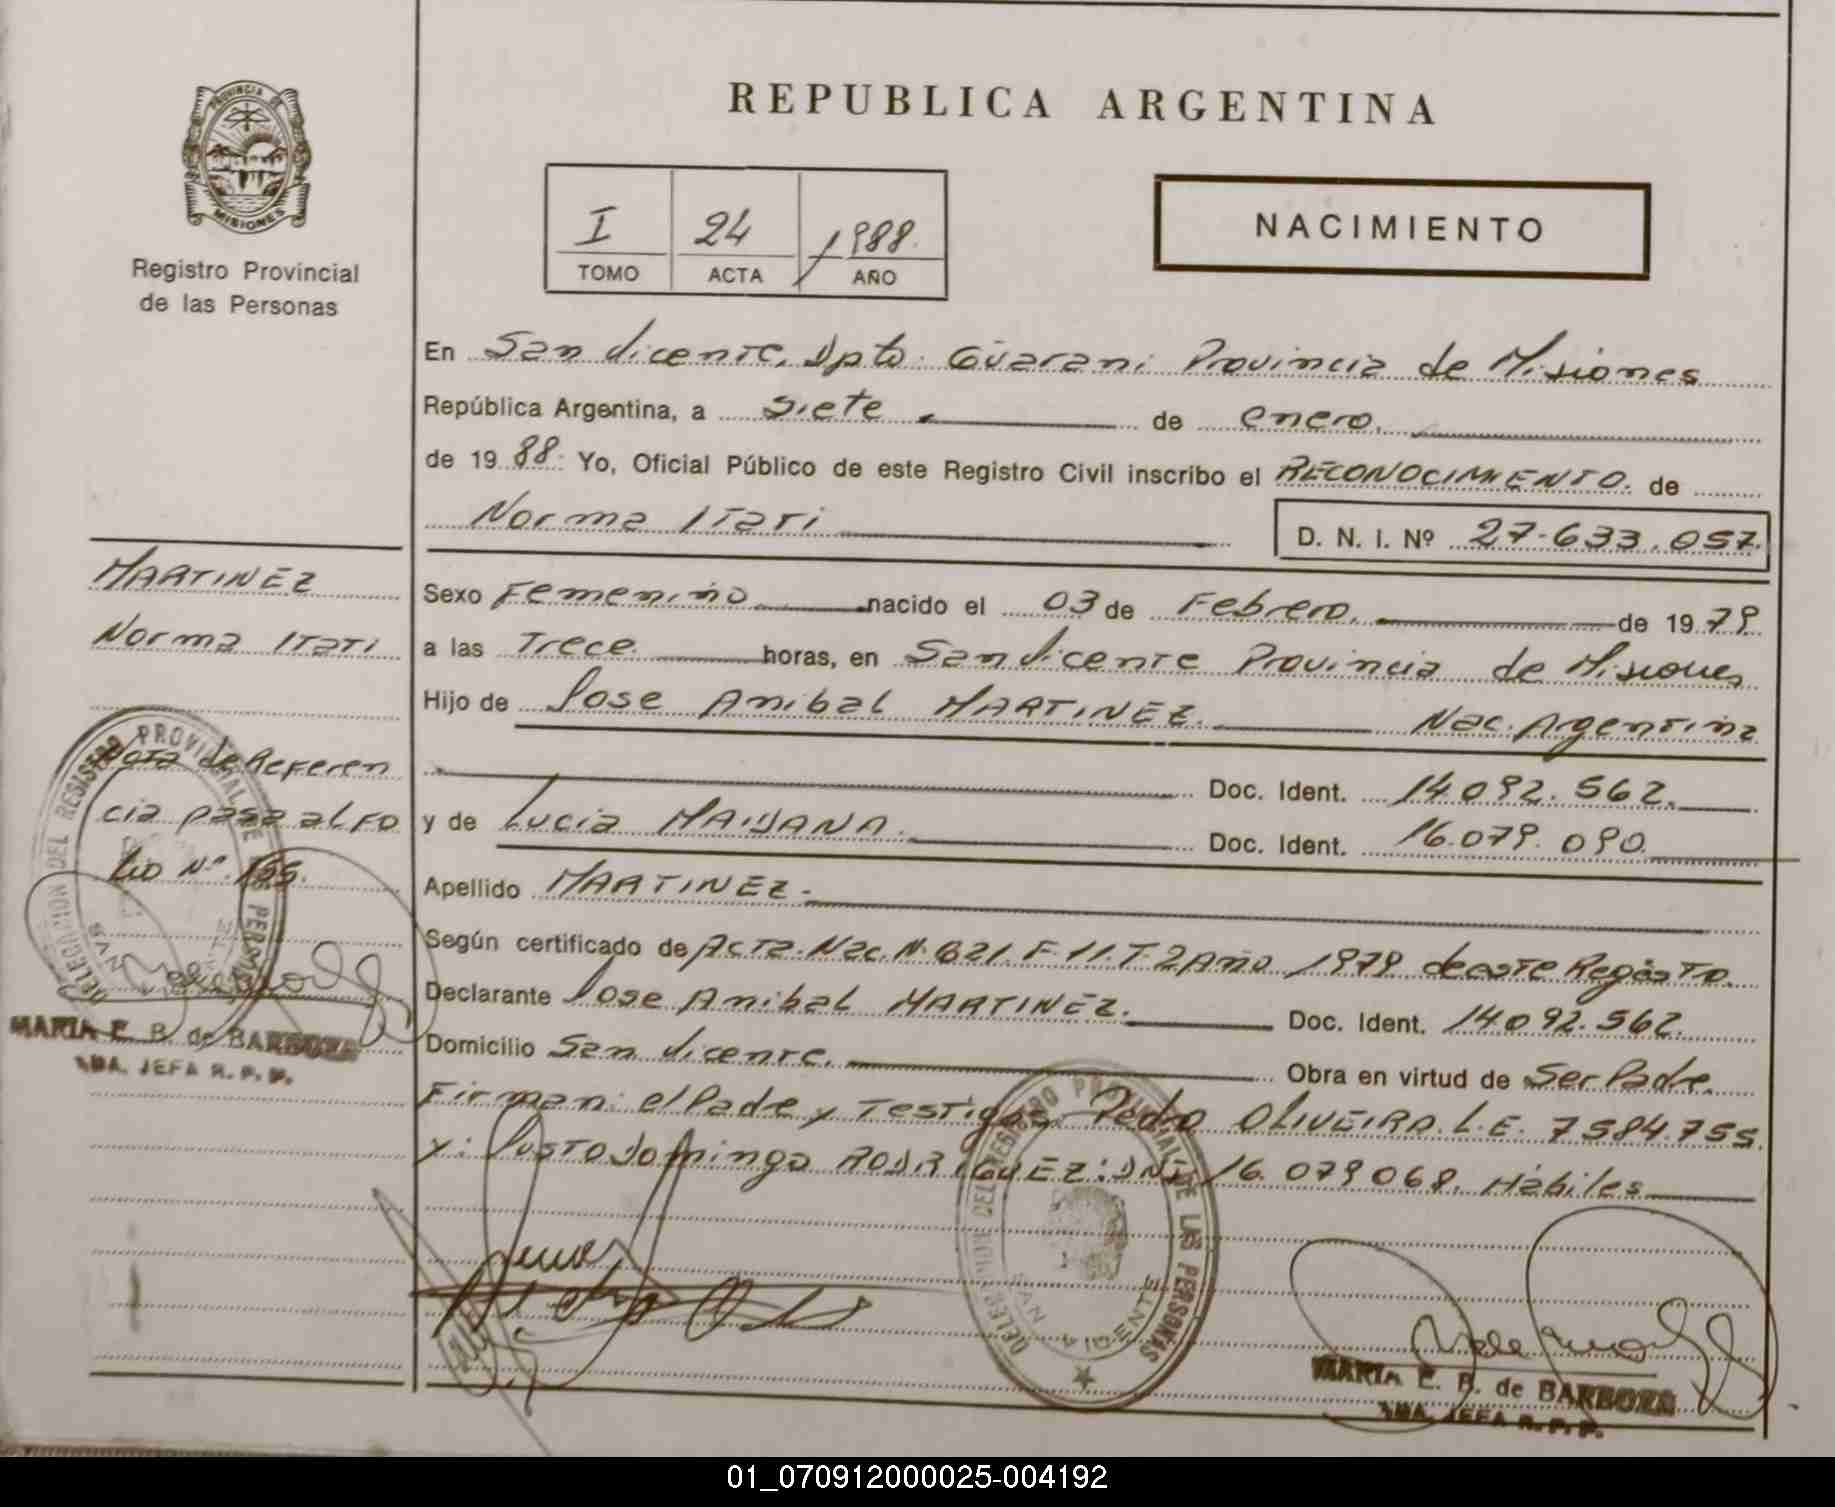 PROVINCIA DE
MISIONES
Registro Provincial
de las Personas
REPUBLICA ARGENTINA
I 24 1988.
TOMO ACTA AÑO
NACIMIENTO
En San Vicente, Dpto. Guarani Provincia de Misiones
República Argentina, a siete de enero.
de 1988. Yo, Oficial Público de este Registro Civil inscribo el RECONOCIMIENTO. de
Norma Itati D. N. I. Nº 27-633.057.
MARTINEZ
Norma Itati
Sexo Femenino nacido el 03 de Febrero. de 1979.
a las Trece. horas, en San Vicente Provincia de Misiones
Hijo de Jose Anibal MARTINEZ. Nac. Argentina
Doc. Ident. 14.092.562.
y de Lucia MAIDANA. Doc. Ident. 16.079.090.
Apellido MARTINEZ.
Según certificado de Acta. Nac. N. 621. F. 11. T. 2 Año 1979 de este Registro.
Declarante Jose Anibal MARTINEZ. Doc. Ident. 14.092.562.
Domicilio San Vicente. Obra en virtud de Ser Padre.
Firman: el Padre y Testigos Pedro OLIVEIRA. L.E. 7584.755
y: Justo Domingo RODRIGUEZ: DNI 16.079068. Habiles
Nota de Referen
cia pasa al Fo
lio Nº. 155.
DELEGACION DEL REGISTRO PROVINCIAL DE LAS PERSONAS
SAN VICENTE
MARIA E. B. de BARBOZA
JEFA R. P. P.
DELEGACION DEL REGISTRO PROVINCIAL DE LAS PERSONAS
SAN VICENTE
MARIA E. B. de BARBOZA
JEFA R. P. P.
01_070912000025-004192